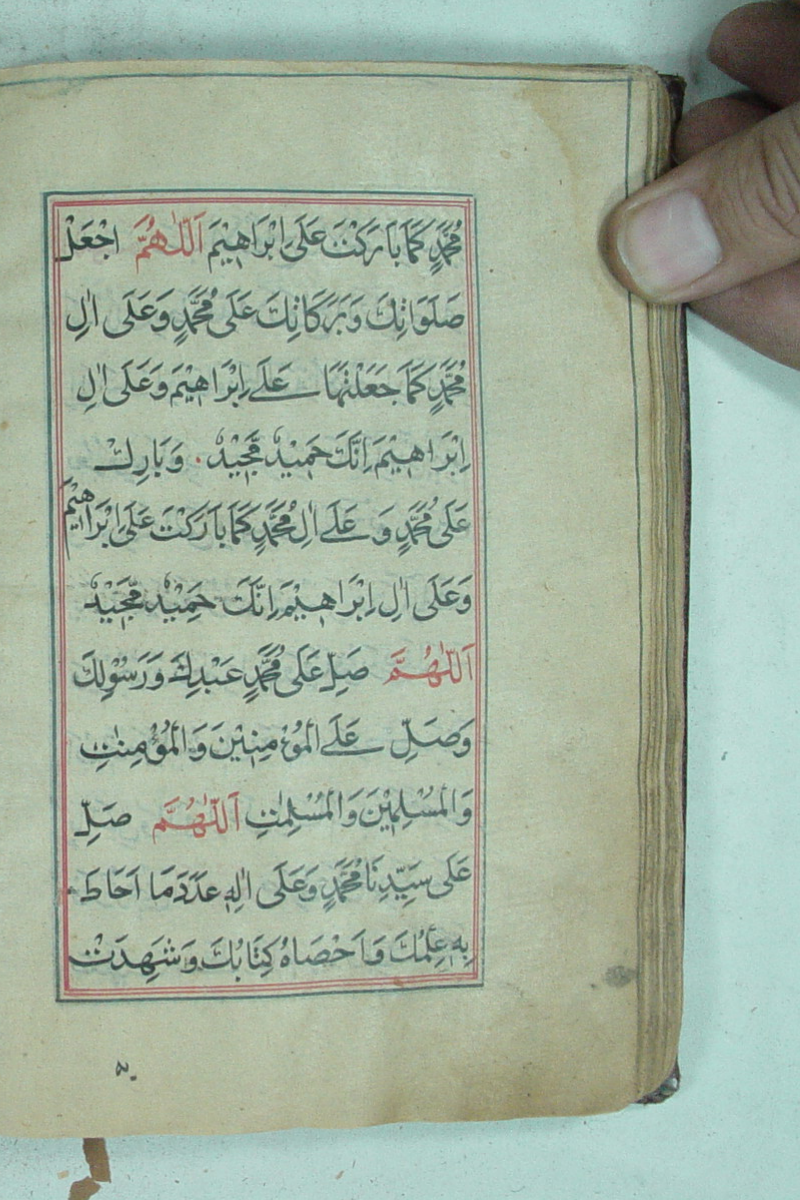 مُحَمَّدٍ كَمَا بَارَكْتَ عَلَى اِبْرَاهِيْمَ اَللّٰهُمَّ اجْعَلْ
صَلَوَاتِكَ وَبَرَكَاتِكَ عَلَى مُحَمَّدٍ وَعَلَى اٰلِ
مُحَمَّدٍ كَمَا جَعَلْتَهَا عَلَے اِبْرَاهِيْمَ وَعَلَى اٰلِ
اِبْرَاهِيْمَ اِنَّكَ حَمِيْدٌ مَّجِيْدٌ . وَبَارِكْ
عَلَى مُحَمَّدٍ وَ عَلَے اٰلِ مُحَمَّدٍ كَمَا بَارَكْتَ عَلَى اِبْرَاهِيْمَ
وَعَلَى اٰلِ اِبْرَاهِيْمَ اِنَّكَ حَمِيْدٌ مَّجِيْدٌ
اَللّٰهُمَّ صَلِّ عَلَى مُحَمَّدٍ عَبْدِكَ وَرَسُوْلِكَ
وَصَلِّ عَلَے الْمُؤْمِنِيْنَ وَالْمُؤْمِنٰتِ
وَالْمُسْلِمِيْنَ وَالْمُسْلِمٰتِ اَللّٰهُمَّ صَلِّ
عَلَى سَيِّدِنَا مُحَمَّدٍ وَعَلَى اٰلِهٖ عَدَدَ مَا اَحَاطَ
بِهٖ عِلْمُكَ وَاَحْصَاهُ كِتَابُكَ وَشَهِدَتْ